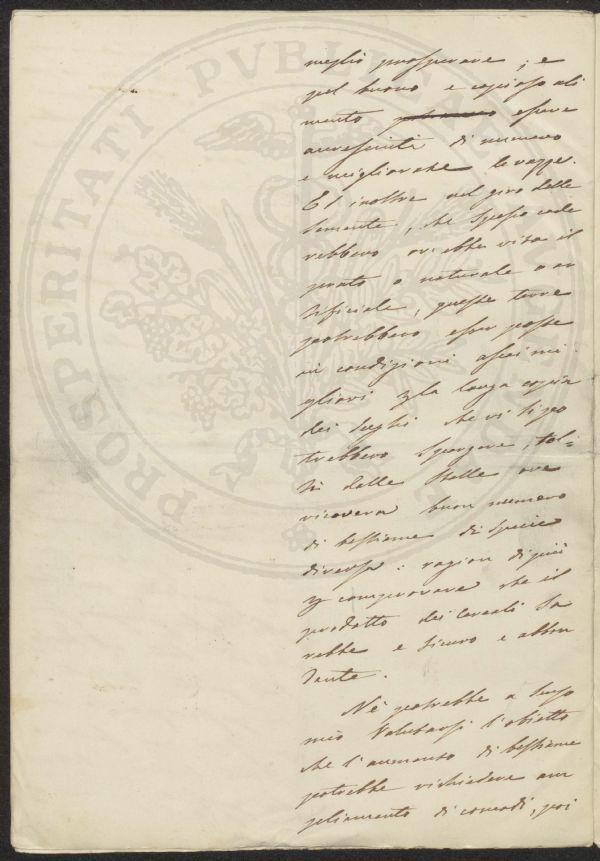 PROSPERITATI PVBLICAE AVGENDAE
meglio prosperare, e
pel buono e copioso ali
mento essere
accresciuti di numero
e migliorate le razze.
Ed inoltre nel giro delle
Semente, che spesso cade
rebbero ov'ebbe vita il
prato o naturale o ar
tificiale, queste terre
potrebbero esser poste
in condizioni assai mi
gliori per la larga copia
dei sughi che vi si po
trebbero spargere, tol=
ti dalle Stalle ove
ricovera buon numero
di bestiame di specie
diversa: ragion di più
per comprovare che il
prodotto dei Cereali sa
rebbe e sicuro e abbon
dante.
Nè potrebbe a
mio Valutarsi l'obietto
che l'aumento di bestiame
potrebbe richiedere am
pliamento di comodi, poi